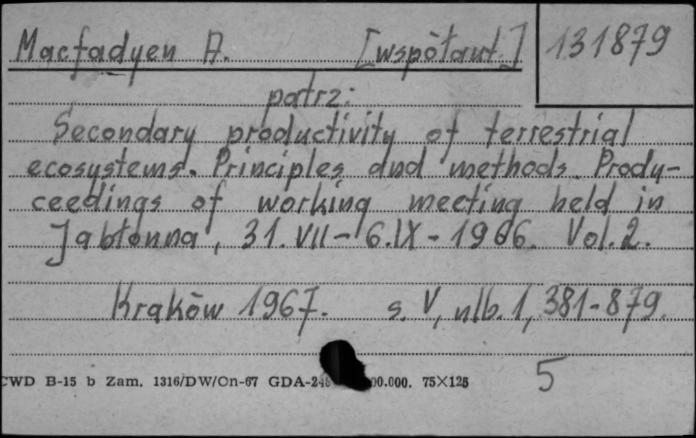 Macfadyen A. [współaut.] 131879
patrz:
Secondary productivity of terrestrial
ecosystems. Principles and methods. Prody-
ceedings of working meeting held in
Jabłonna, 31.VII-6.IX-1966. Vol.2.
Kraków 1967. s. V, nlb. 1, 381-879.
CWD B-15 b Zam. 1316/DW/On-67 GDA-248 00.000. 75×125
5